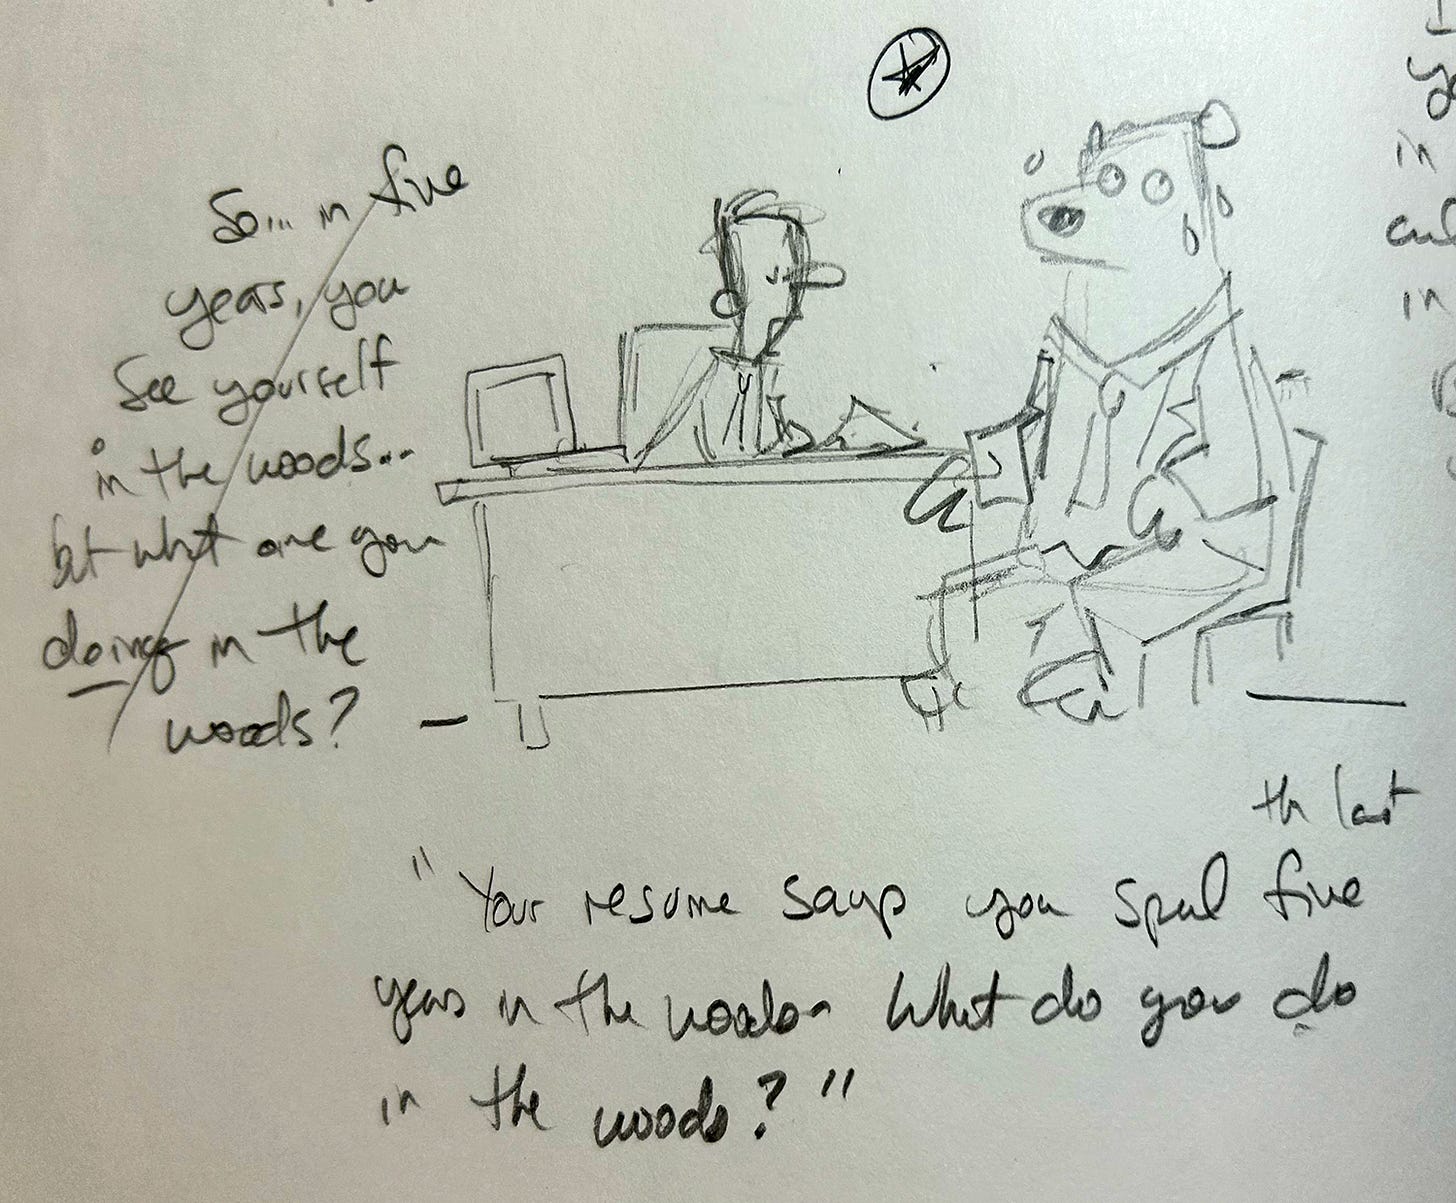 So... in five
years, you
see yourself
in the woods...
but what are you
doing in the
woods?
th last
"Your resume says you spend five
years in the woods. What do you do
in the woods?"
in
in